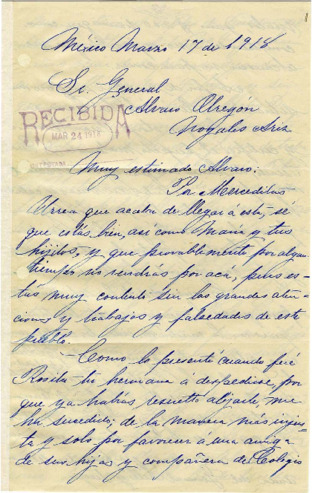 1
México Marzo 17 de 1918
Sr. General
Alvaro Obregón
Nogales Ariz
RECIBIDA
MAR 24 1918
Muy estimado Alvaro:
Por Merceditas
Urrea que acaba de llegar á esta, se
que estás bien, asi como Maria y tus
hijitos, y que provablemente por algun
tiempo no vendras por acá, pues es-
tás muy contento sin las grandes aten-
ciones y trabajos y falsedades de este
pueblo.
Como lo presenté cuando fué
Rosita tu hermana á despedirse, por
que ya habias resuelto alejarte me
ha sucedido; de la manera más injus-
ta y solo por favorecer á una amiga
de sus hijas y compañera de Colegio